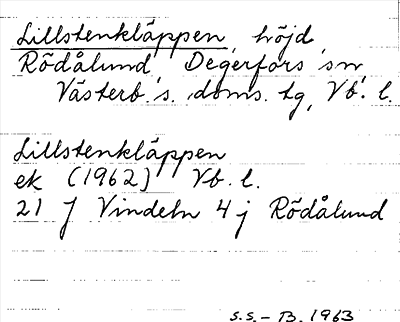 Lillstenkläppen, höjd,
Rödålund, Degerfors sn
Västerb. s. doms. tg, Vb. l.
Lillstenkläppen
ek (1962) Vb. l.
21 J Vindeln 4 j Rödålund
s.s. - B. 1963